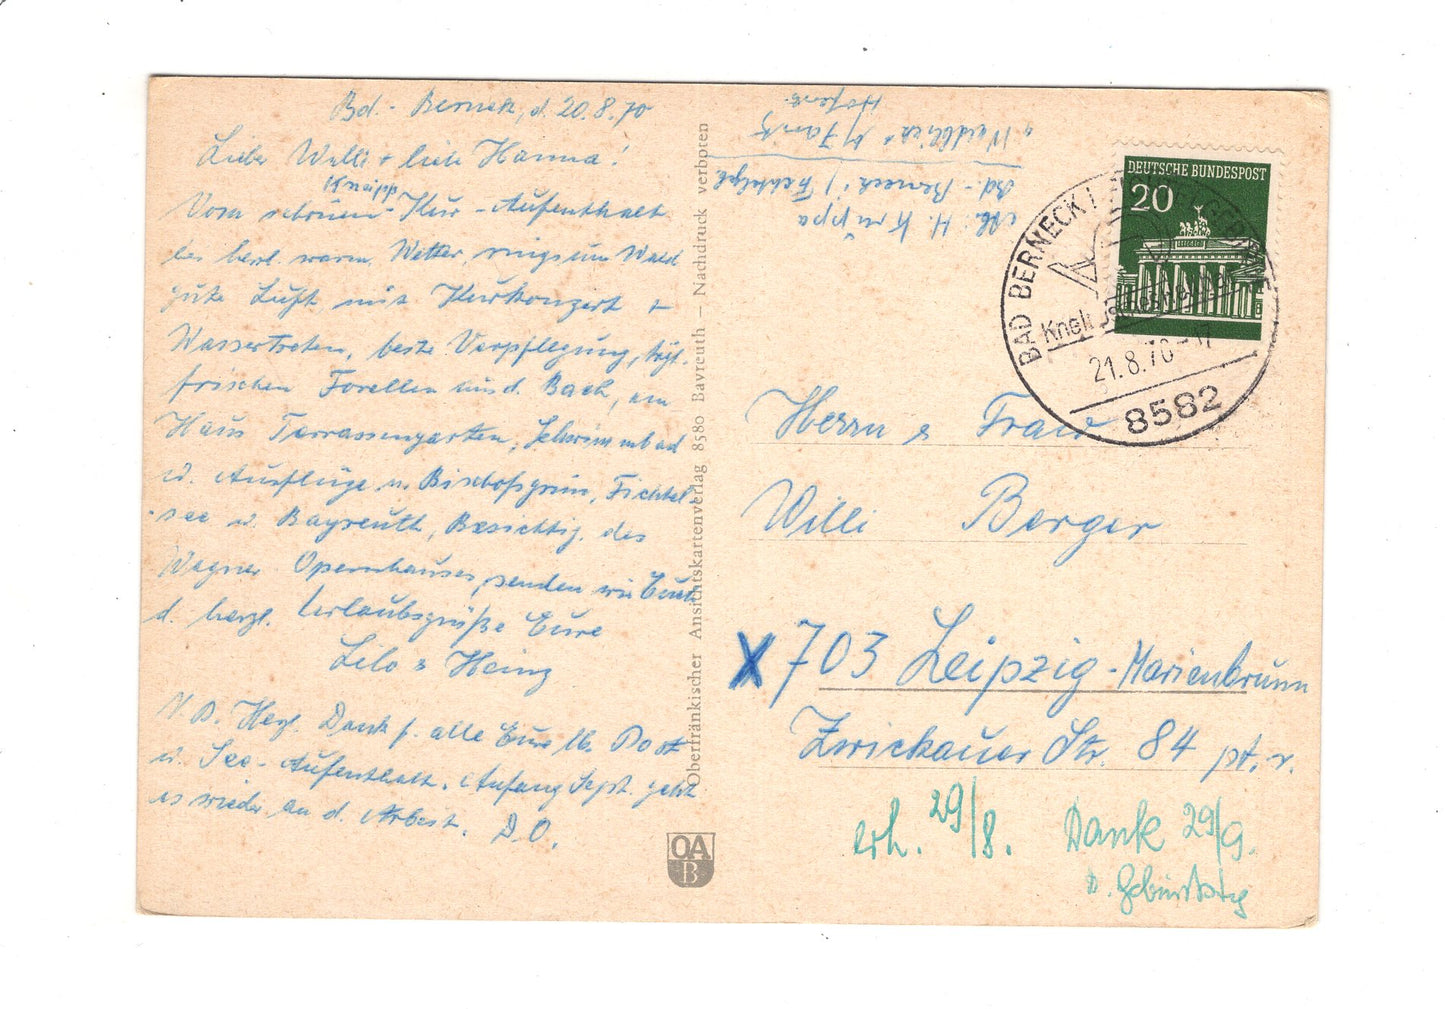 Bd.- Berneck, d. 20.8.70
Liebe Willi + liebe Hanna!
Kneipp
Vom schönen - Kur - Aufenthalt
bei herl. warm. Wetter, ringsum Wald
gute Luft mit Kurkonzert +
Wassertreten, beste Verpflegung, tägl.
frischen Forellen aus d. Bach, am
Haus Terrassengarten, Schwimmbad
u. Ausflüge n. Bischofsgrün, Fichtel-
see u. Bayreuth, Besichtig. des
Wagner Opernhauses, senden wir Euch
d. herzl. Urlaubsgrüße Eure
Lilo & Heinz
N.B. Herzl. Dank f. alle Eure lb. Post
u. See-Aufenthalt. Anfang Sept. geht
es wieder an d. Arbeit. D.O.
Oberfränkischer Ansichtskartenverlag 8580 Bayreuth – Nachdruck verboten
OA
B
Abs. H. Kruppa
Bd.-Berneck / Fichtelgb.
DEUTSCHE BUNDESPOST
20
BAD BERNECK I.
21.8.70-17
8582
Herrn & Frau
Willi Berger
X 703 Leipzig-Marienbrunn
Zwickauer Str. 84 pt. r.
erh. 29/8. Dank 29/9.
z. Geburtstg